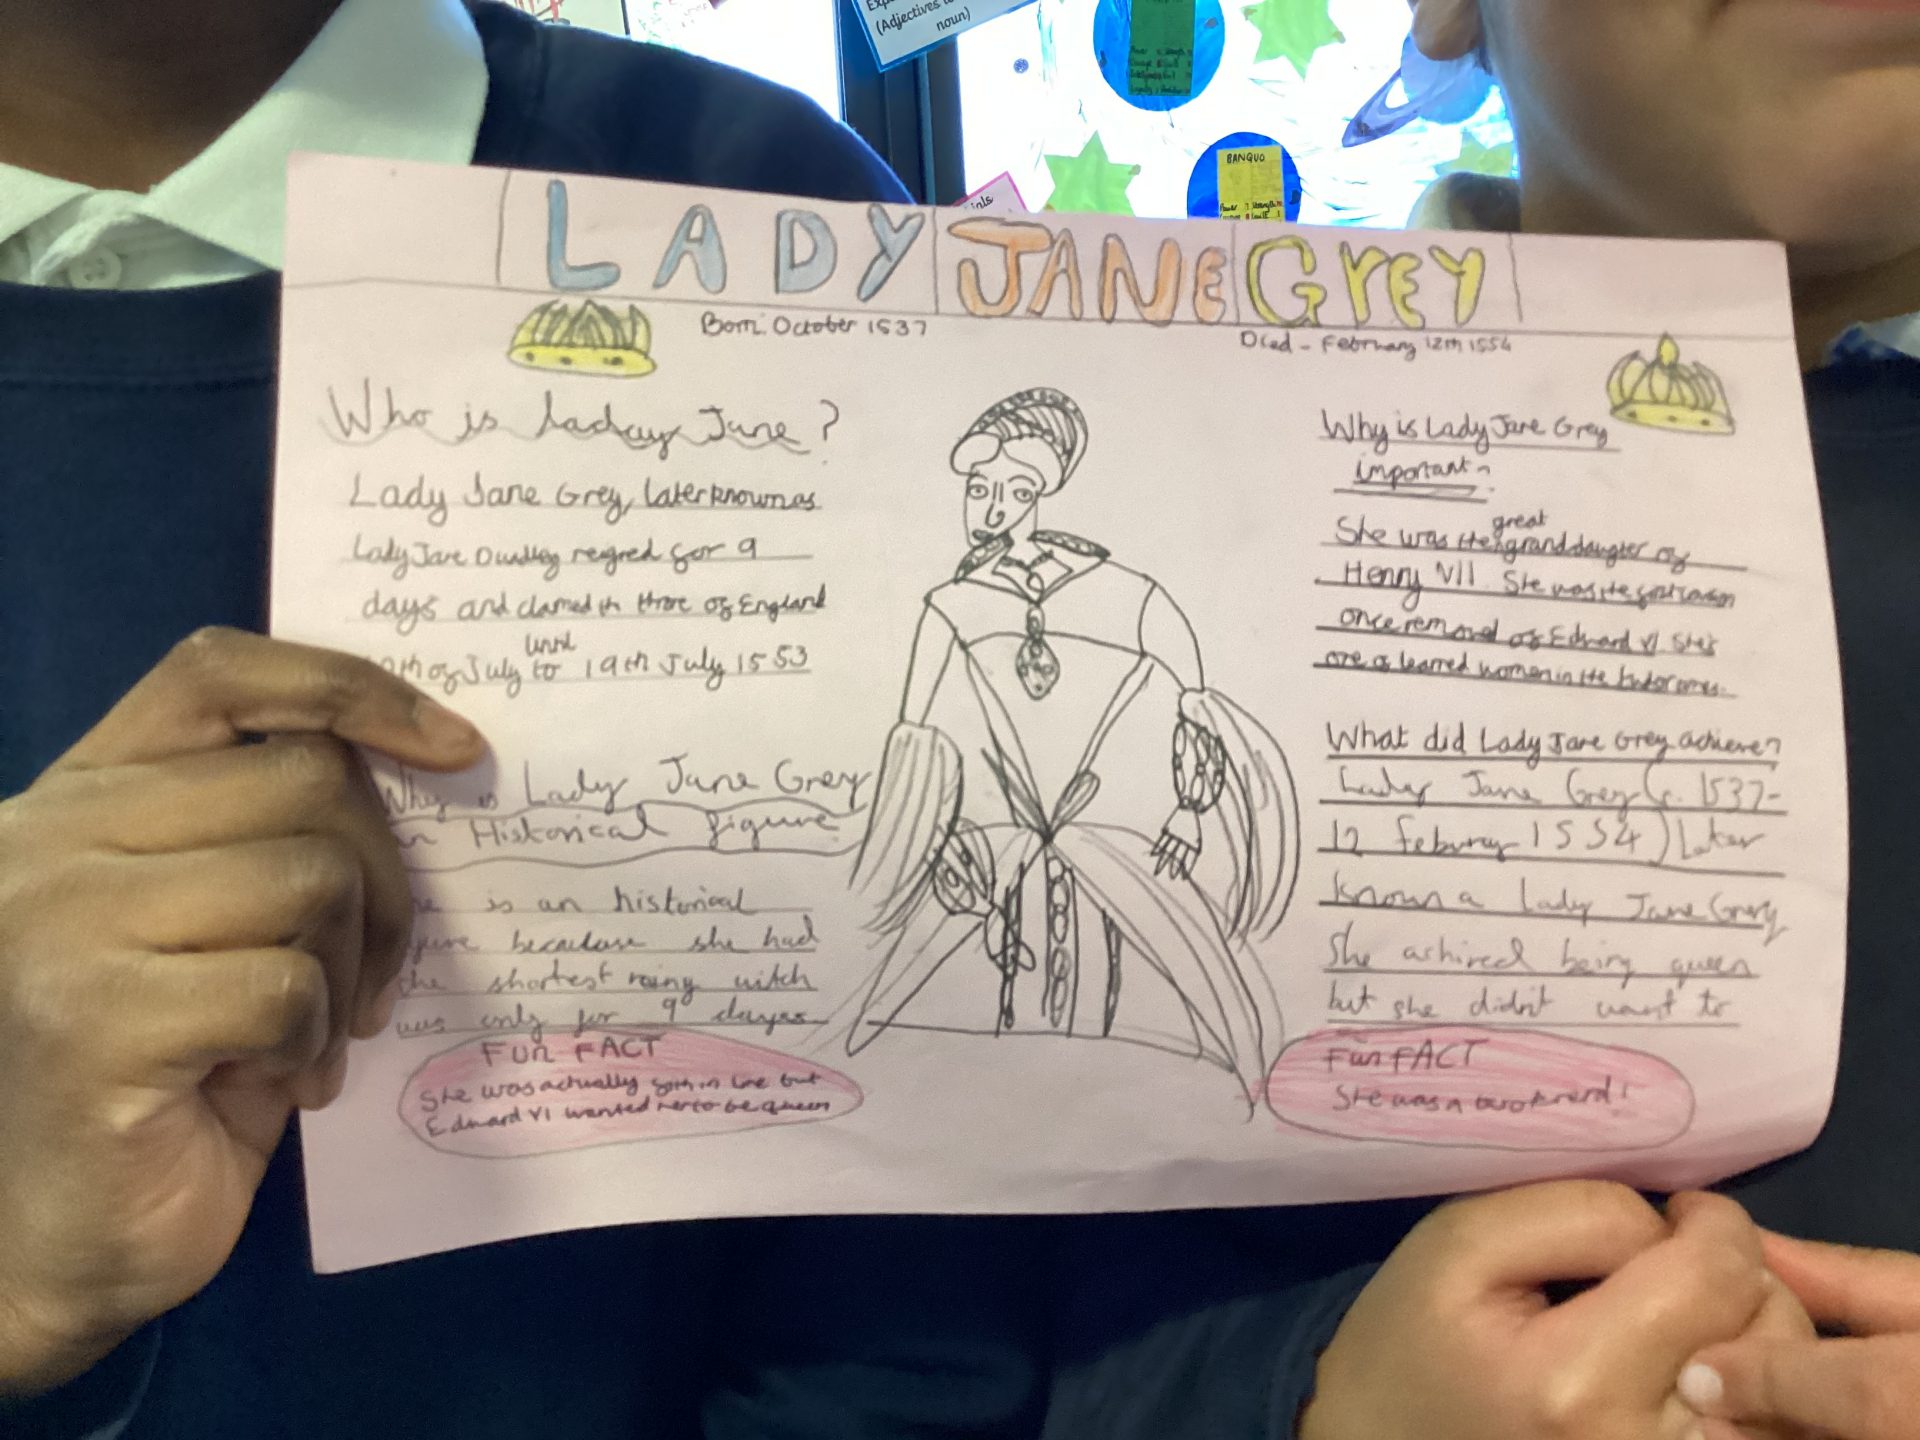 (Adjectives
noun)
BANQUO
LADY JANE GREY
Born: October 1537
Died - February 12th 1554
Who is Laday Jane?
Lady Jane Grey, later known as
Lady Jane Dudley reigned for 9
days and claimed th throne of England
until
th of July to 19th July 1553
Why is Lady Jane Grey
Historical figure
is an historical
because she had
the shortest
was only for 9 dayes
FUN FACT
She was actually in line but
Edward VI wanted her to be queen
Why is Lady Jane Grey
important?
great
She was the granddaughter of
Henry VII. She was the
once removed of Edward VI. She's
one of learred women in the
What did Lady Jane Grey achieve?
Lady Jane Grey (c. 1537-
12 1554) Later
known a Lady Jane Grey
She achired being queen
but she didn't want to
Fun FACT
She was a